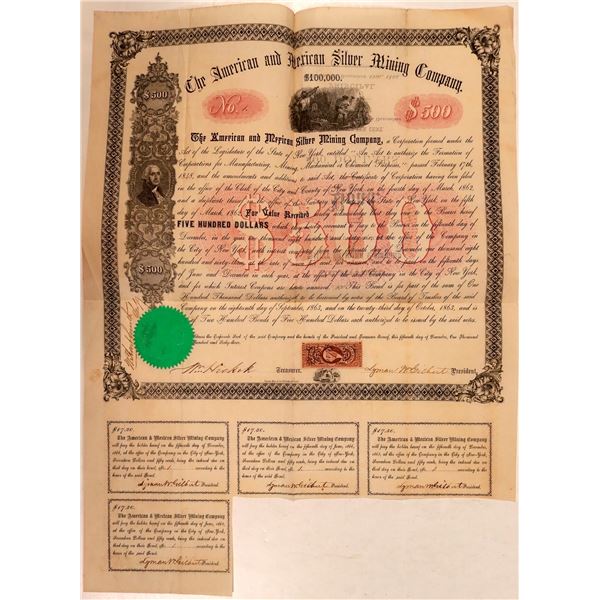 The American and Mexican Silver Mining Company.
$500
$100,000.
No. 1
$500
The American and Mexican Silver Mining Company, a Corporation formed under the
Act of the Legislature of the State of New York, entitled "An Act to authorize the Formation of
Corporations for Manufacturing, Mining, Mechanical or Chemical Purposes," passed February 17th,
1848, and the amendments and additions to said Act, the Certificate of Corporation having been filed
in the office of the Clerk of the City and County of New York, on the fourth day of March, 1862,
and a duplicate thereof in the office of the Secretary of the State of New York, on the fifth
day of March, 1862, For Value Received
FIVE HUNDRED DOLLARS
December, in the year
in the City of New York, with interest
and sixty
of June and December in each year, at the office of the said Company in the City of New York,
and for which Interest Coupons are This Bond is for part of the sum of One
Hundred Thousand Dollars authorized to be issued by votes of the Board of Trustees of the said
Company on the eighteenth day of September, 1863, and on the twenty third day of October, 1863, and is
one of Two Hundred Bonds of Five Hundred Dollars each authorized to be issued by the said votes.
$500
$500
Witness the Corporate Seal of the said Company and the hands of the President and Treasurer thereof, this fifteenth day of December, One Thousand
Eight Hundred and Sixty three.
Treasurer.
Lyman W. Gilbert President.
$17.50.
The American & Mexican Silver Mining Company
will pay the holder hereof on the fifteenth day of December,
at the office of the Company in the City of New-York,
Seventeen Dollars and fifty cents, being the interest due on
that day on their Bond, No. 1 according to the
tenor of the said Bond.
Lyman W. Gilbert President.
$17.50.
The American & Mexican Silver Mining Company
will pay the holder hereof on the fifteenth day of June,
at the office of the Company in the City of New-York,
Seventeen Dollars and fifty cents, being the interest due on
that day on their Bond, No. 1 according to the
tenor of the said Bond.
Lyman W. Gilbert President.
$17.50.
The American & Mexican Silver Mining Company
will pay the holder hereof on the fifteenth day of December,
at the office of the Company in the City of New-York,
Seventeen Dollars and fifty cents, being the interest due on
that day on their Bond, No. 1 according to the
tenor of the said Bond.
Lyman W. Gilbert President.
$17.50.
The American & Mexican Silver Mining Company
will pay the holder hereof on the fifteenth day of June,
at the office of the Company in the City of New-York,
Seventeen Dollars and fifty cents, being the interest due on
that day on their Bond, No. 1 according to the
tenor of the said Bond.
Lyman W. Gilbert President.